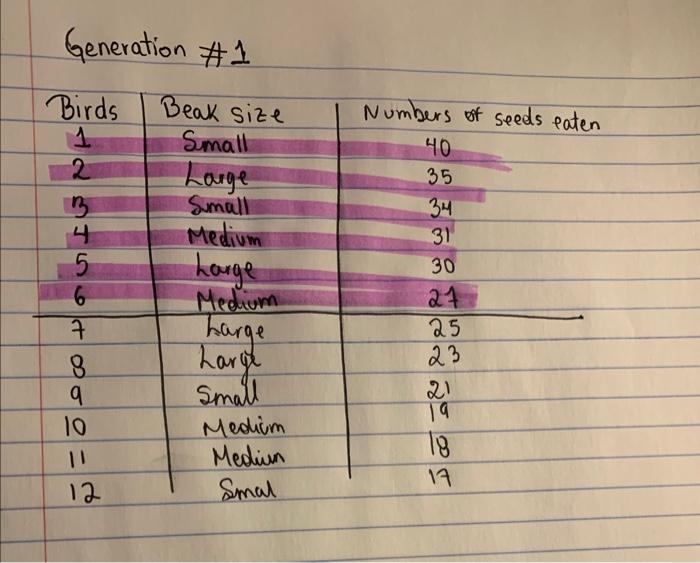 Generation #1
Birds Beak size Numbers of seeds eaten
1 Small 40
2 Large 35
3 Small 34
4 Medium 31
5 Large 30
6 Medium 27
7 Large 25
8 Large 23
9 Small 21
10 Medium 19
11 Medium 18
12 Smal 17